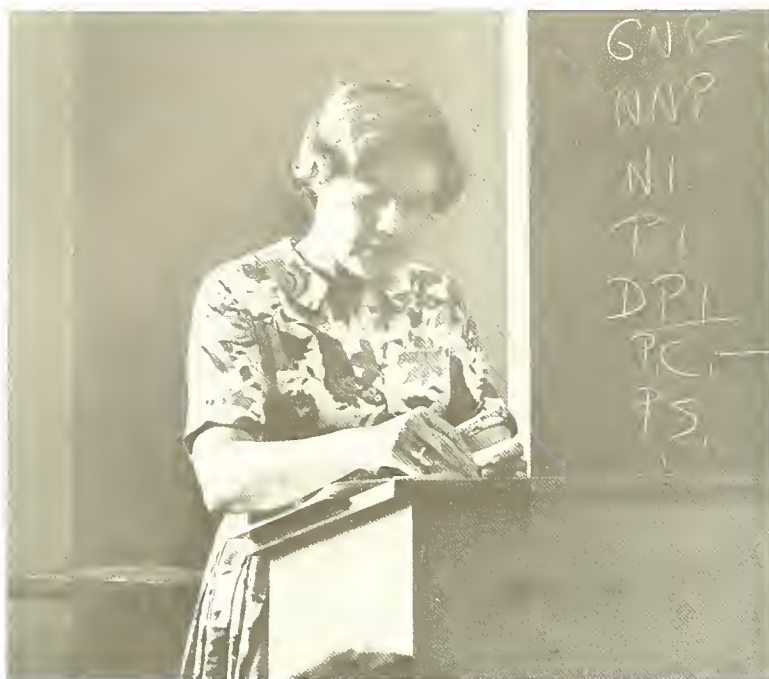 GNP
NNP
NI
PI
DPI
PC.
PS.